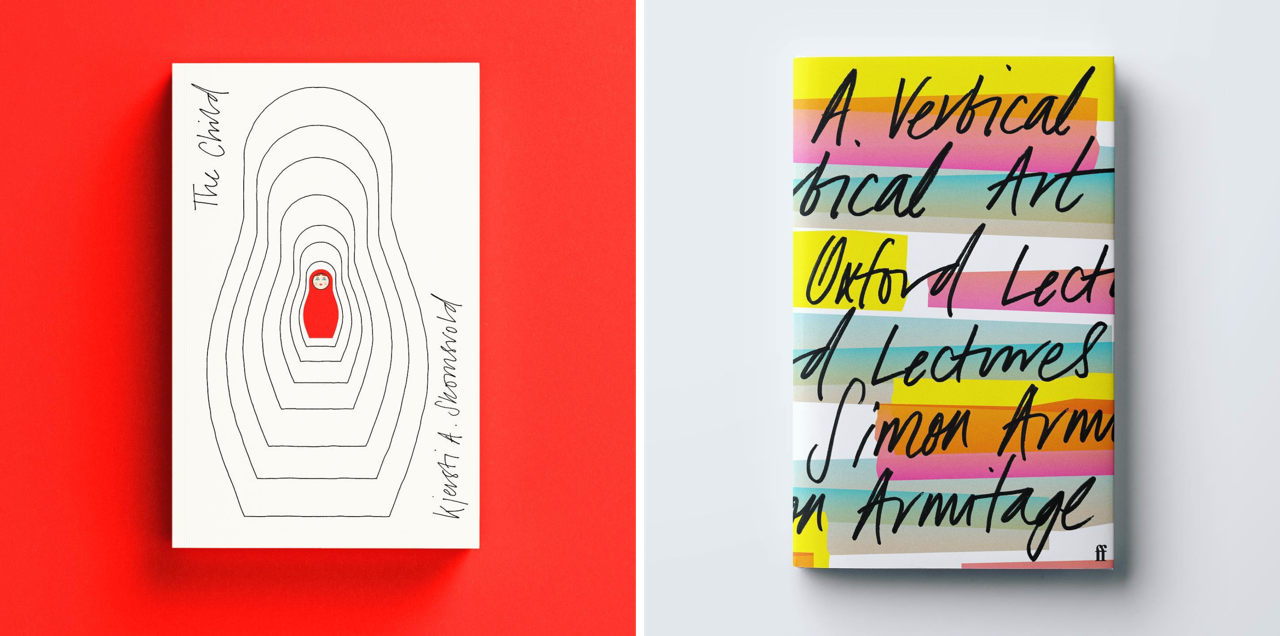 The Child
Kjersti A. Skomsvold
A. Vertical
tical Art
Oxford Lectu
d Lectures
Simon Armi
on Armitage
ff